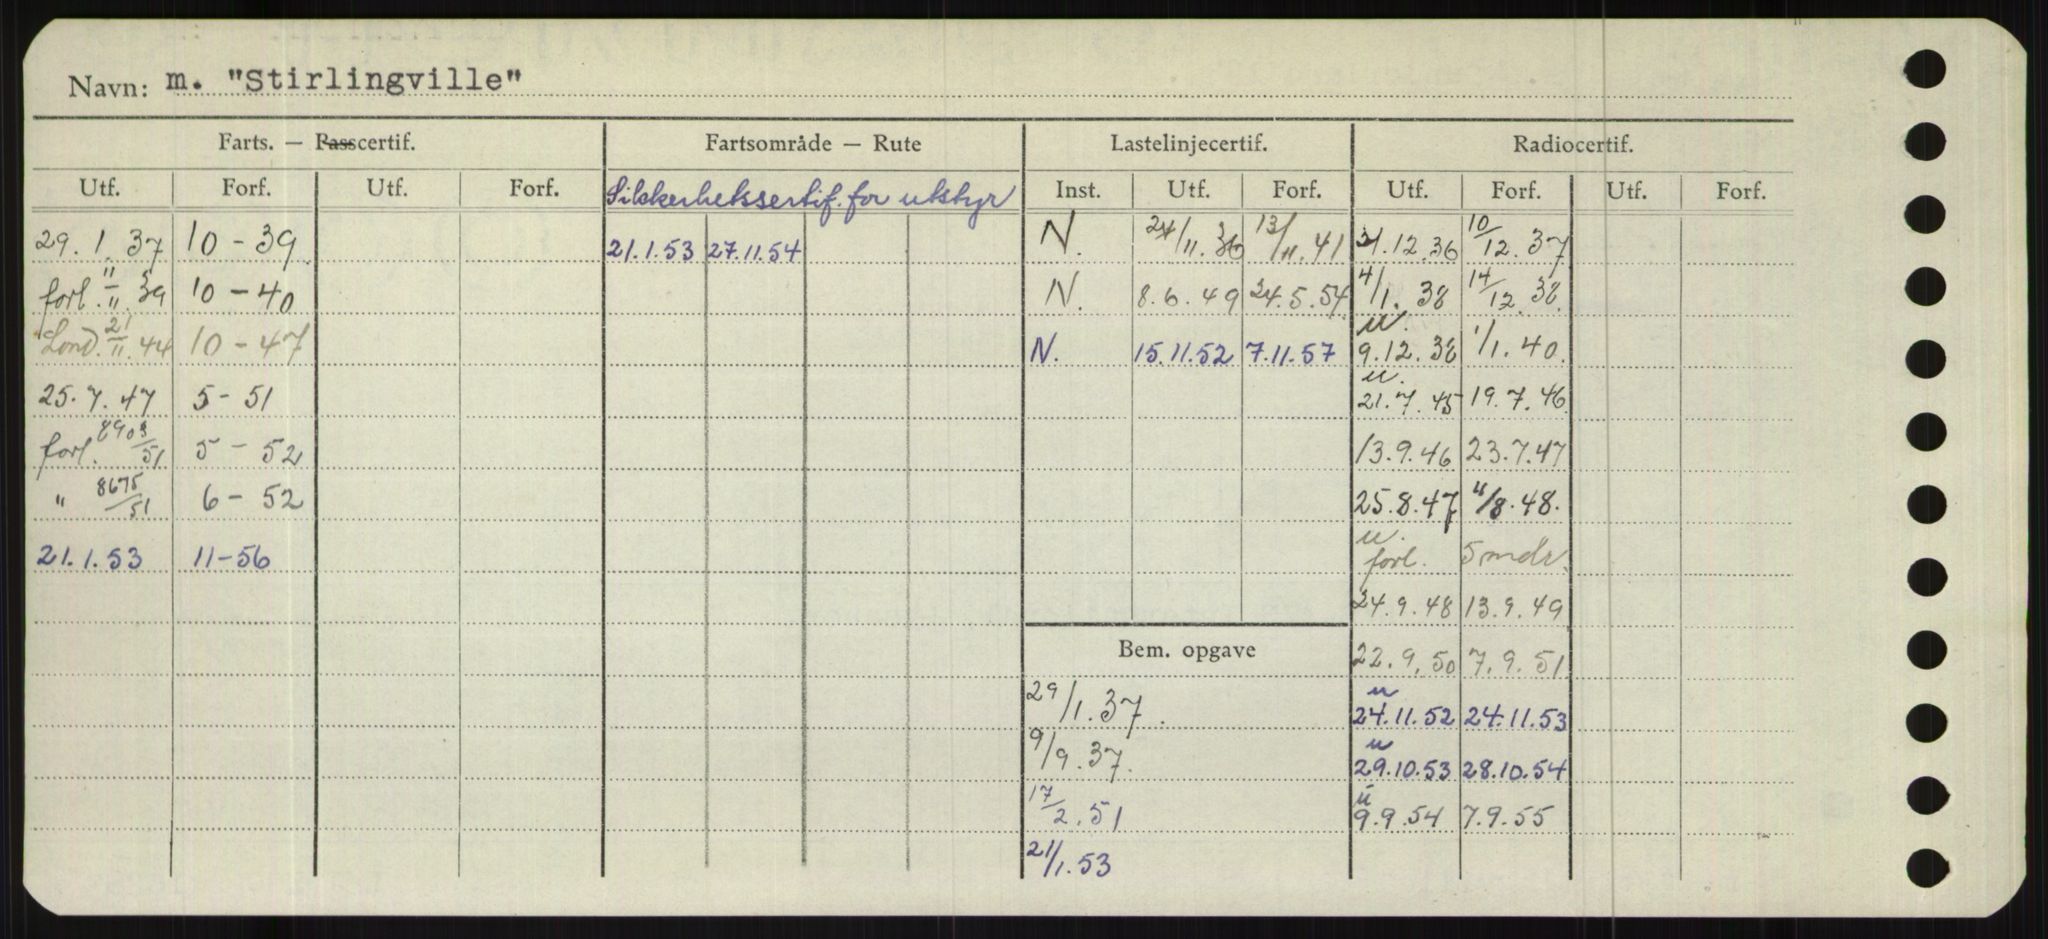 Navn: m. "Stirlingville"
Farts. — Passcertif. Fartsområde — Rute Lastelinjecertif. Radiocertif.
Utf. Forf. Utf. Forf. Sikkerhetssertif. for utstyr Inst. Utf. Forf. Utf. Forf. Utf. Forf.
29.1.37 10-39 21.1.53 27.11.54 N. 24/11.36 13/11.41 31.12.36 10/12.37
forl. 11/11.39 10-40 N. 8.6.49 24.5.54 4/1.38 14/12.38
Lond. 21/11.44 10-47 N. 15.11.52 7.11.57 u. 9.12.38 1/1.40.
25.7.47 5-51 u. 21.7.45 19.7.46
forl. 8903/51 5-52 13.9.46 23.7.47
" 8675/51 6-52 25.8.47 4/8.48.
21.1.53 11-56 u. forl. 5 mdr.
24.9.48 13.9.49
Bem. opgave 22.9.50 7.9.51
29/1.37. u 24.11.52 24.11.53
9/9.37. u 29.10.53 28.10.54
17/2.51 u 9.9.54 7.9.55
21/1.53